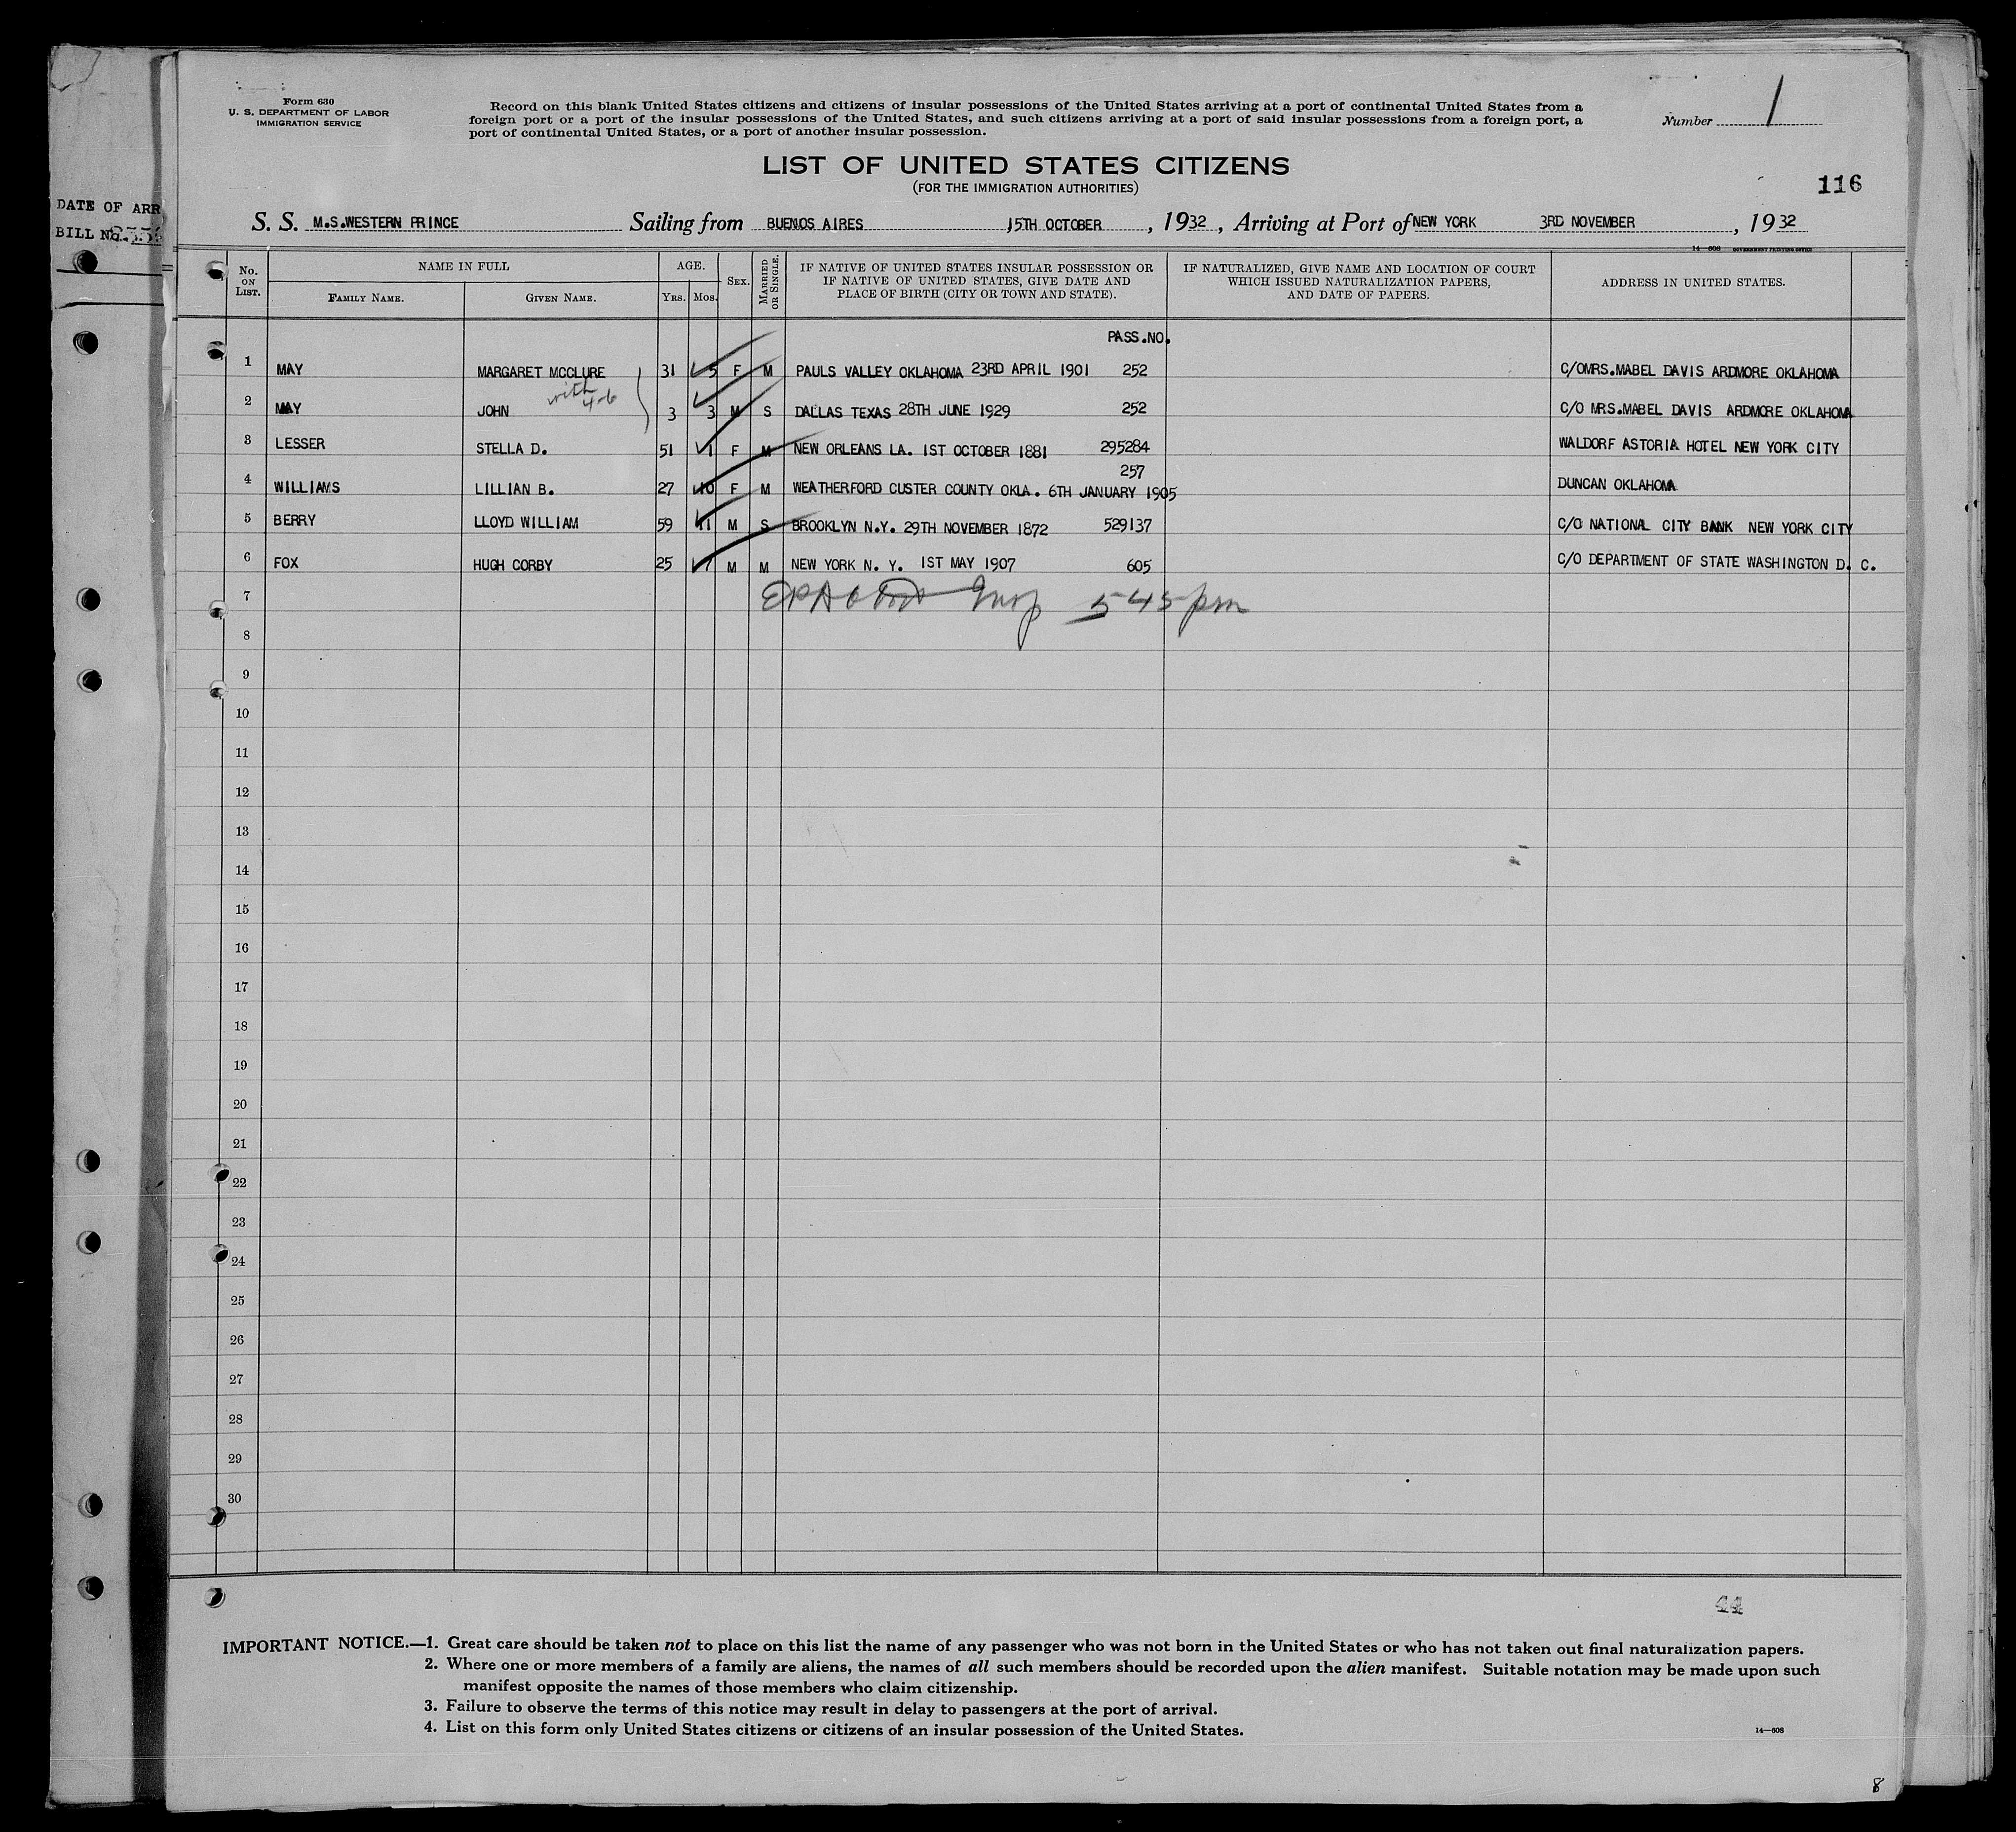 Form 630
U. S. DEPARTMENT OF LABOR
IMMIGRATION SERVICE
Record on this blank United States citizens and citizens of insular possessions of the United States arriving at a port of continental United States from a
foreign port or a port of the insular possessions of the United States, and such citizens arriving at a port of said insular possessions from a foreign port, a
port of continental United States, or a port of another insular possession.
Number 1
LIST OF UNITED STATES CITIZENS
(FOR THE IMMIGRATION AUTHORITIES)
116
DATE OF ARR
BILL NO.
S. S. M.S.WESTERN PRINCE Sailing from BUENOS AIRES 15TH OCTOBER, 1932, Arriving at Port of NEW YORK 3RD NOVEMBER, 1932
14—608 GOVERNMENT PRINTING OFFICE
No. ON LIST. NAME IN FULL FAMILY NAME. GIVEN NAME. AGE. YRS. MOS. SEX. MARRIED OR SINGLE. IF NATIVE OF UNITED STATES INSULAR POSSESSION OR IF NATIVE OF UNITED STATES, GIVE DATE AND PLACE OF BIRTH (CITY OR TOWN AND STATE). IF NATURALIZED, GIVE NAME AND LOCATION OF COURT WHICH ISSUED NATURALIZATION PAPERS, AND DATE OF PAPERS. ADDRESS IN UNITED STATES.
PASS.NO.
1 MAY MARGARET MCCLURE 31 5 F M PAULS VALLEY OKLAHOMA 23RD APRIL 1901 252 C/OMRS.MABEL DAVIS ARDMORE OKLAHOMA
with 4-6
2 MAY JOHN 3 3 M S DALLAS TEXAS 28TH JUNE 1929 252 C/O MRS.MABEL DAVIS ARDMORE OKLAHOMA
3 LESSER STELLA D. 51 1 F M NEW ORLEANS LA. 1ST OCTOBER 1881 295284 WALDORF ASTORIA HOTEL NEW YORK CITY
4 WILLIAMS LILLIAN B. 27 10 F M WEATHERFORD CUSTER COUNTY OKLA. 6TH JANUARY 1905 257 DUNCAN OKLAHOMA
5 BERRY LLOYD WILLIAM 59 11 M S BROOKLYN N.Y. 29TH NOVEMBER 1872 529137 C/O NATIONAL CITY BANK NEW YORK CITY
6 FOX HUGH CORBY 25 7 M M NEW YORK N. Y. 1ST MAY 1907 605 C/O DEPARTMENT OF STATE WASHINGTON D. C.
7 Insp 545 pm
8
9
10
11
12
13
14
15
16
17
18
19
20
21
22
23
24
25
26
27
28
29
30
44
IMPORTANT NOTICE.—1. Great care should be taken not to place on this list the name of any passenger who was not born in the United States or who has not taken out final naturalization papers.
2. Where one or more members of a family are aliens, the names of all such members should be recorded upon the alien manifest. Suitable notation may be made upon such
manifest opposite the names of those members who claim citizenship.
3. Failure to observe the terms of this notice may result in delay to passengers at the port of arrival.
4. List on this form only United States citizens or citizens of an insular possession of the United States.
14—608
8